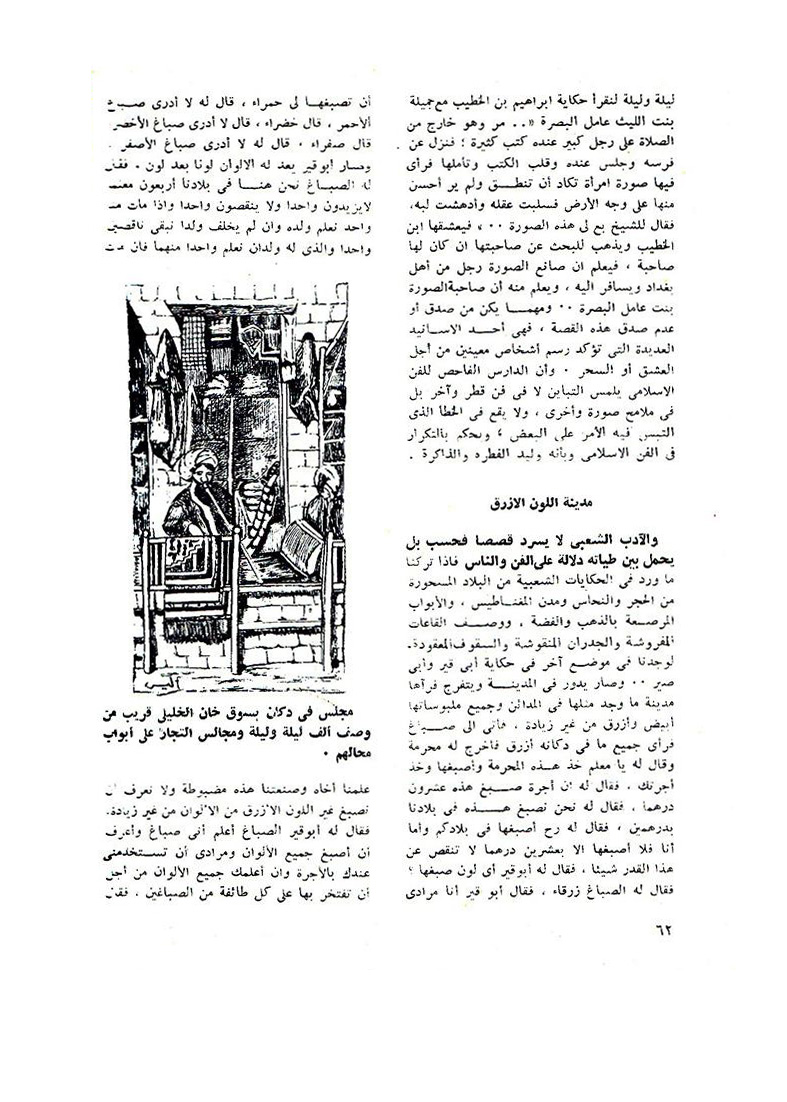 ليلة وليلة لنقرأ حكاية ابراهيم بن الخطيب مع جميلة
بنت الليث عامل البصرة « .. مر وهو خارج من
الصلاة على رجل كبير عنده كتب كثيرة ؛ فنزل عن
فرسه وجلس عنده وقلب الكتب وتأملها فرأى
فيها صورة امرأة تكاد أن تنطق ولم ير أحسن
منها على وجه الأرض فسلبت عقله وأدهشت لبه،
فقال للشيخ بع لى هذه الصورة ٠٠ » فيعشقها ابن
الخطيب ويذهب للبحث عن صاحبتها ان كان لها
صاحبة ، فيعلم ان صانع الصورة رجل من أهل
بغداد ويسافر اليه ، ويعلم منه أن صاحبة الصورة
بنت عامل البصرة ٠٠ ومهما يكن من صدق أو
عدم صدق هذه القصة ، فهى أحد الاسانيد
العديدة التى تؤكد رسم أشخاص معينين من أجل
العشق أو السحر ٠ وأن الدارس الفاحص للفن
الاسلامى يلمس التباين لا فى فن قطر وآخر بل
فى ملامح صورة وأخرى ، ولا يقع فى الخطأ الذى
التبس فيه الأمر على البعض ؛ ويحكم بالتكرار
فى الفن الاسلامى وبأنه وليد الفطره والذاكرة .
مدينة اللون الازرق
والآدب الشعبى لا يسرد قصصا فحسب بل
يحمل بين طياته دلالة على الفن والناس فاذا تركنا
ما ورد فى الحكايات الشعبية من البلاد المسحورة
من الحجر والنحاس ومدن المغناطيس ، والأبواب
المرصعة بالذهب والفضة ، ووصف القاعات
المفروشة والجدران المنقوشة والسقوف المعقودة.
لوجدنا فى موضع آخر فى حكاية أبى قير وأبى
صير ٠٠ وصار يدور فى المدينة ويتفرج فرآها
مدينة ما وجد مثلها فى المدائن وجميع ملبوساتها
أبيض وأزرق من غير زيادة ، فأتى الى صباغ
فرأى جميع ما فى دكانه أزرق فاخرج له محرمة
وقال له يا معلم خذ هذه المحرمة وأصبغها وخذ
أجرتك . فقال له ان أجرة صبغ هذه عشرون
درهما ، فقال له نحن نصبغ هذه فى بلادنا
بدرهمين ، فقال له رح أصبغها فى بلادكم وأما
أنا فلا أصبغها الا بعشرين درهما لا تنقص عن
هذا القدر شيئا ، فقال له أبوقير أى لون صبغها ؟
فقال له الصباغ زرقاء ، فقال أبو قير أنا مرادى
أن تصبغها لى حمراء ، قال له لا أدرى صباغ
الأحمر ، قال خضراء ، قال لا أدرى صباغ الأخضر
قال صفراء ، قال له لا أدرى صباغ الأصفر .
وصار أبوقير يعد له الالوان لونا بعد لون . فقال
له الصباغ نحن هنا فى بلادنا أربعون معلما
لايزيدون واحدا ولا ينقصون واحدا واذا مات منا
واحد نعلم ولده وان لم يخلف ولدا نبقى ناقصين
واحدا والذى له ولدان نعلم واحدا منهما فان مات
مجلس فى دكان بسوق خان الخليلى قريب من
وصف ألف ليلة وليلة ومجالس التجار على أبواب
محالهم ٠
علمنا أخاه وصنعتنا هذه مضبوطة ولا نعرف أن
نصبغ غير اللون الازرق من الالوان من غير زيادة.
فقال له أبوقير الصباغ أعلم أنى صباغ وأعرف
أن أصبغ جميع الألوان ومرادى أن تستخدمنى
عندك بالأجرة وان أعلمك جميع الالوان من أجل
أن تفتخر بها على كل طائفة من الصباغين . فقال
٦٢